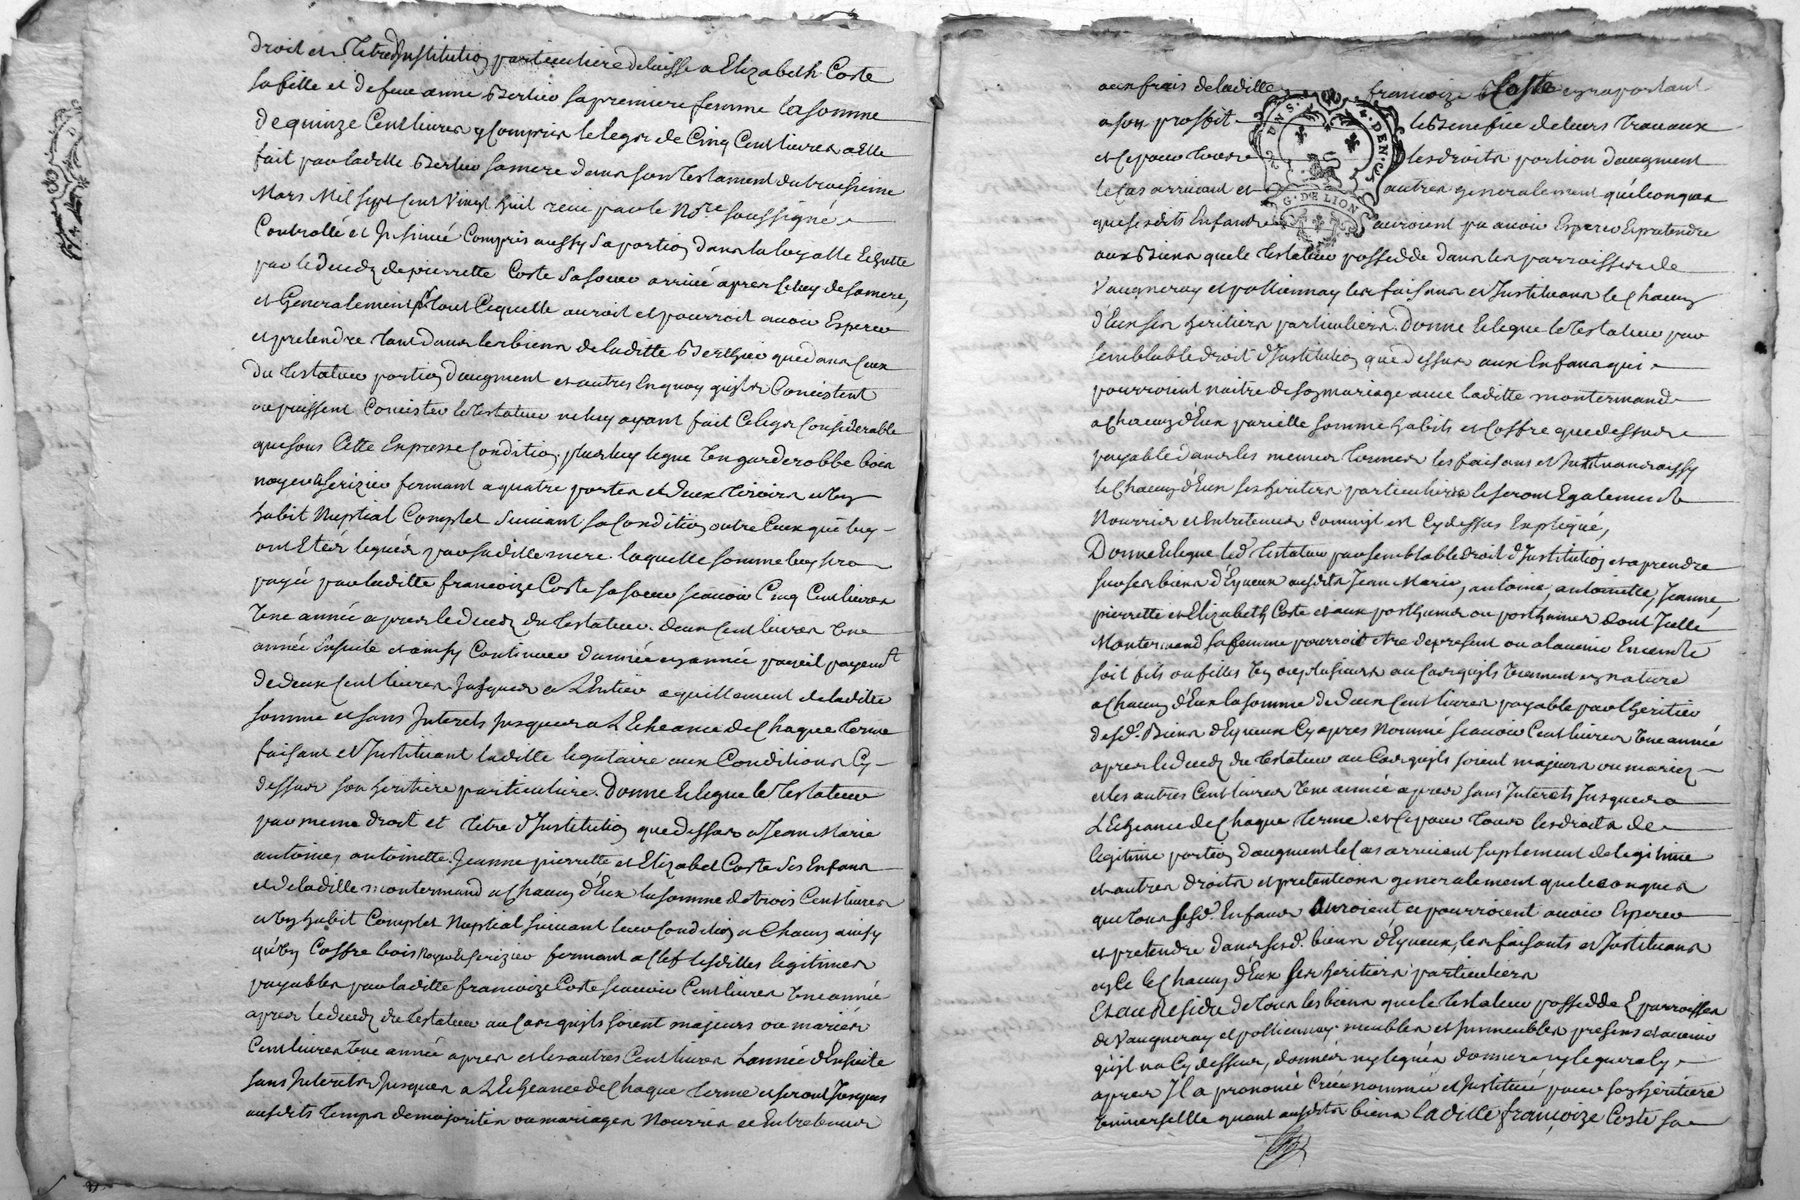 droit et titre d'Institution particuliere delaisse a Elizabeth Coste
sa fille et defeue anne Bertieu sa premiere femme la somme
de quinze Cent livres y Compris le legs de Cinq Cent livres a elle
fait par ladite Bertieu sa mere dans son testament du troisieme
Mars Mil sept Cent Vingt huit receu par le No.re soussigné
Controllé et Insinué Compris aussy sa portion dans la loyalle Echutte
par le deceds de pierrette Coste sa soeur arrivé apres celuy de sa mere,
et Generalement p.r tout Cequelle auroit et pourroit avoir Esperer
et pretendre tant dans les biens de laditte Bertieu que dans Ceux
du testateur portion daugment et autres En quoy quils Concistent
ou puissent Concister le testateur ne luy ayant fait Ce legs Considerable
que sous Cette Expresse Condition, plus luy legue Un garderobbe bois
noyer & serizier fermant a quatre portes et deux tiroirs et Un
habit Nuptial Complet suivant sa Condition outre Ceux qui luy
ont Etés legués par saditte mere. laquelle somme luy sera
payée par laditte francoize Coste sa soeur scavoir Cinq Cent livres
Une année apres le deceds du testateur. deux Cent livres Une
année Ensuite et ainsy Continuer dannée en année pareil payem.t
de deux Cent livres Jusques a L'Entier aquittement de ladite
somme et sans Interets Jusques a L'Echeance de Chaque terme
faisant et Instituant laditte legataire aux Conditions Cy
dessus son heritiere particuliere. Donne & legue le testateur
par meme droit et titre d'Institution que dessus a Jean Marie
antoine, antoinette, Jeanne pierrette et Elizabet Coste ses Enfans
et de laditte montermand a Chacun d'Eux la somme de trois Cent livres
et Un habit Complet Nuptial suivant leur Condition a Chacun ainsy
qu'Un Coffre bois Noyer & Cerizier fermant a Clef lesdittes legitimes
payables par laditte francoize Coste scavoir Cent livres Une année
apres le deceds du testateur au Cas quils soient majeurs ou mariés
Cent livres Une année apres et les autres Cent livres Lannée d'Ensuite
sans Interets Jusques a L'Echeance de Chaque terme et seront Jusques
ausdits temps de majorités ou mariages Nourris et Entretenus
aux frais de laditte francoize Coste en raportant
a son proffit le Benefice de leurs travaux
et Ce pour tous les droits portion daugment
le Cas arrivant et autres generalement quelconques
que sesdits Enfans auroient pu avoir Esperer & pretendre
aux Biens que le testateur possedde dans les parroisses de
Vaugneray et pollionnay les faisant et Instituant le Chacun
d'Eux ses heritiers particuliers. Donne & legue le testateur par
semblable droit d'Institution que dessus aux Enfans qui
pourroient naitre de son mariage avec laditte montermand
a Chacun d'Eux pareille somme habits et Coffre que dessus
payable dans les memes termes les faisans et Instituans aussy
le Chacun d'Eux ses heritiers particuliers lesseront Egalement
Nourris et Entretenus Comm'il est Cy dessus Expliqué,
Donne & legue led.t testateur par semblable droit d'Institution et a prendre
sur ses biens d'Eyzeux ausdits Jean Marie, antoine, antoinette, Jeanne,
pierrette et Elizabeth Coste et aux posthumes ou posthumes dont
Montermand sa femme pourroit etre de present ou a lavenir Enceinte
soit fils ou filles Un ou plusieurs au Cas quils Viennent en nature
a Chacun d'Eux la somme de deux Cent livres payable par l'heritier
desd. Biens d'Eyzeux Cy apres Nommé scavoir Cent livres Une année
apres le deceds du testateur au Cas quils soient majeurs ou mariez
et les autres Cent livres Une année apres sans Interets Jusques a
L'Echeance de Chaque terme. et Ce pour tous les droits de
legitime portion daugment le Cas arrivant suplement de legitime
et autres droits et pretentions generalement quelconques
que tous sesd. Enfans auroient et pourroient avoir Esperer
et pretendre dans sesd. biens d'Eyzeux, les faisants et Instituans
en Ce le Chacun d'Eux ses heritiers particuliers
Et au Residu de tous les biens que le testateur possedde Es parroisses
de Vaugneray et pollionnay meubles et Immeubles presens et avenir
qu'il n'a Cy dessus, donnés ny legués donnera ny leguera Cy
apres Il a prononcé Créé nommé et Institué pour son heritiere
Universelle quant ausdits biens laditte françoize Coste sa
G. DE LION